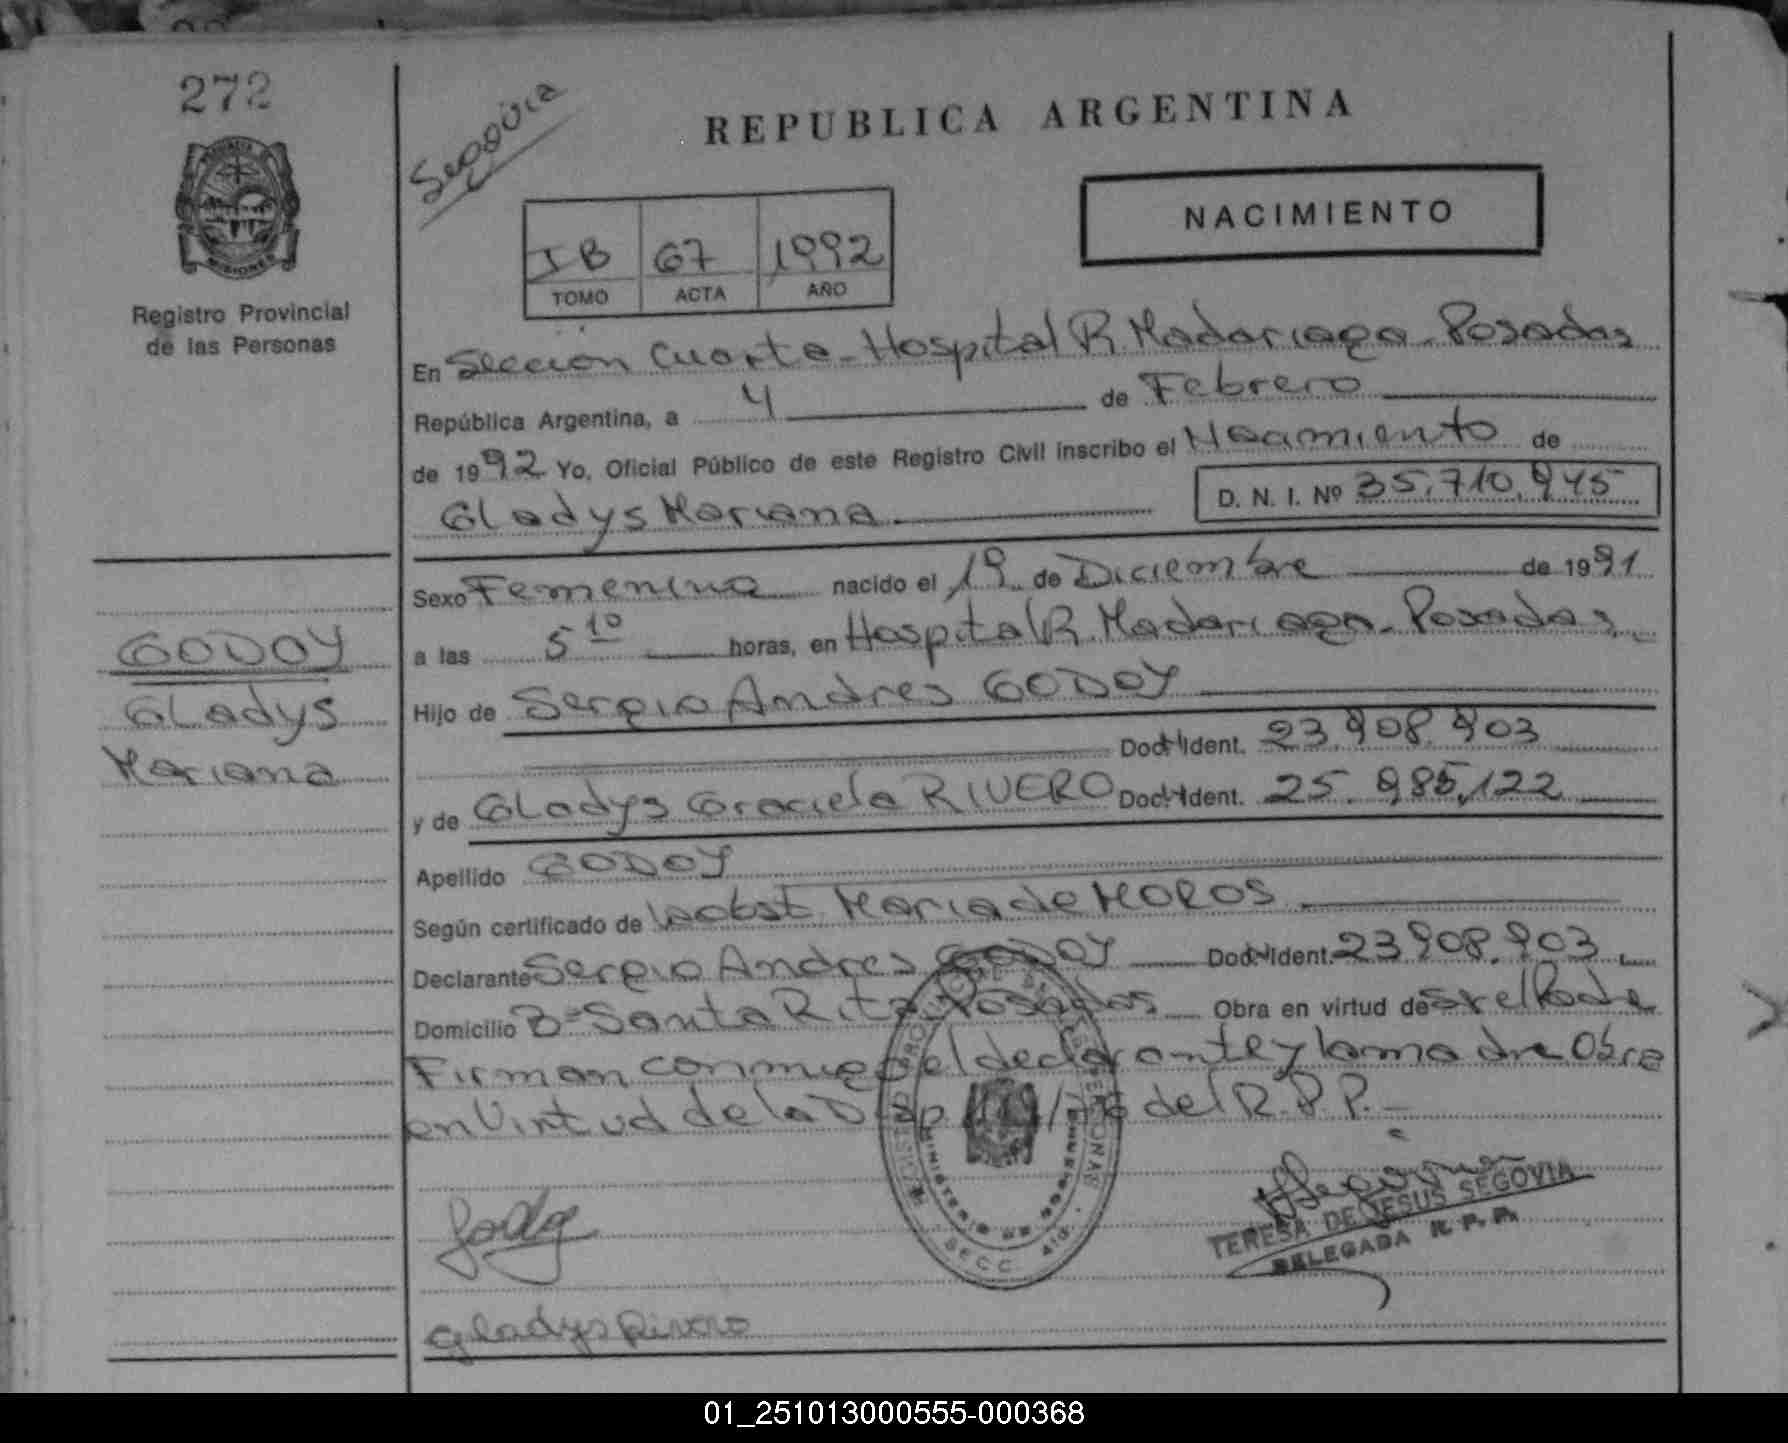 272
Segovia
REPUBLICA ARGENTINA
NACIMIENTO
IB 67 1992
TOMO ACTA AÑO
MISIONES
Registro Provincial
de las Personas
En Sección Cuarta - Hospital R. Madariaga - Posadas
República Argentina, a 4 de Febrero
de 1992 Yo, Oficial Público de este Registro Civil inscribo el Nacimiento de
Gladys Mariana D. N. I. Nº 35.710.945
Sexo Femenino nacido el 19 de Diciembre de 1991
a las 5 10 horas, en Hospital R. Madariaga - Posadas
Hijo de Sergio Andres GODOY
Doc. Ident. 23.908.903
y de Gladys Graciela RIVERO Doc. Ident. 25.985.122
Apellido GODOY
Según certificado de la obst. Maria de MOROS
Declarante Sergio Andres GODOY Doc. Ident. 23.908.903
Domicilio Bº Santa Rita Posadas Obra en virtud de
Firman conmigo el declarante y la madre Obra
en Virtud de la Disp. del R.P.P.-
GODOY
Gladys
Mariana
Godoy
TERESA DE JESUS SEGOVIA
DELEGADA R. P. P.
gladys rivero
01_251013000555-000368